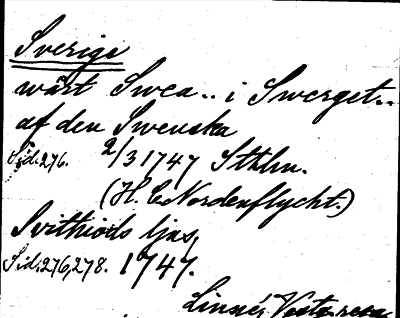 Sverige
wårt Swea.. i Swerget..
af den Swenska
Sid. 276. 2/3 1747 Sthlm.
(H. C. Nordenflycht.)
Svithiods ljus,
Sid. 276, 278. 1747.
Linné,